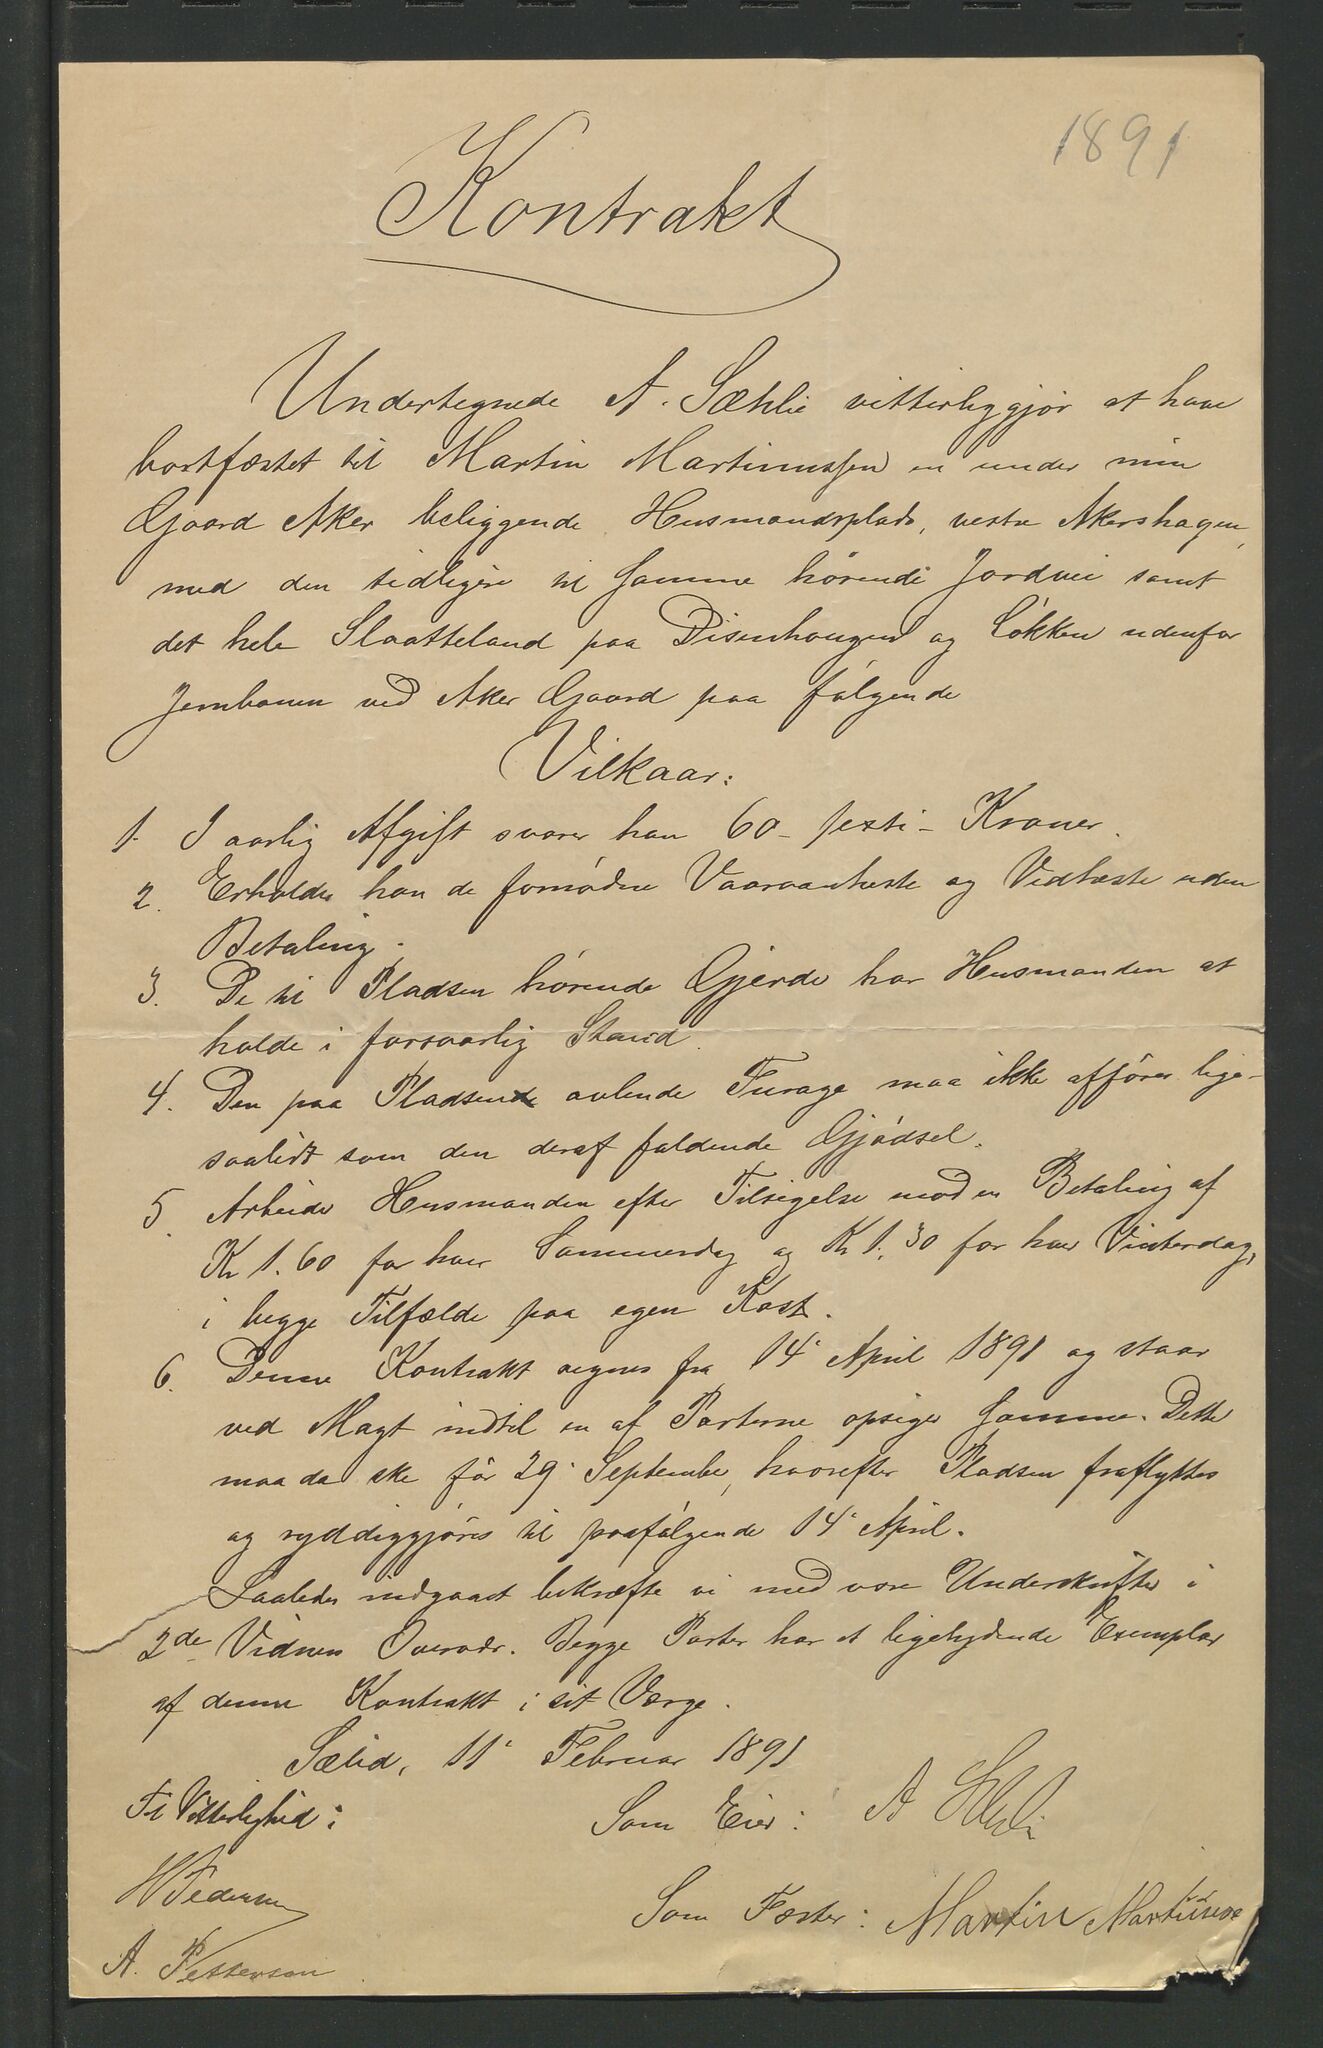 1891
Kontrakt
Undertegnede A. Sæhlie vitterliggjør at have
bortfæstet til Martin Martinussen en under min
Gaard Aker beliggende Husmandsplads, vestre Akershagen,
med den tidligere til samme hørende Jordvei samt
det hele Slaatteland paa Disenhaugen og Løkken udenfor
Jernbanen ved Aker Gaard paa følgende
Vilkaar:
1. I aarlig Afgift svarer han 60 - sexti - Kroner.
2. Erholder han de fornødne Vaaraanheste og Vedheste uden
Betaling.
3. De til Pladsen hørende Gjerde har Husmanden at
holde i forsvarlig Stand.
4. Den paa Pladsen avlende Furage maa ikke afføres lige-
saalidt som den deraf faldende Gjødsel.
5. Arbeider Husmanden efter Tilsigelse mod en Betaling af
Kr 1.60 for hver Sommerdag og Kr 1.30 for hver Vinterdag,
i begge Tilfælde paa egen Kost.
6. Denne Kontrakt regnes fra 14' April 1891 og staar
ved Magt indtil en af Parterne opsiger samme. Dette
maa da ske før 29' September, hvorefter Pladsen fraflyttes
og ryddiggjøres til paafølgende 14' April.
Saaledes indgaaet bekræfte vi med vore Underskrifter i
2de Vidners Overvær. Begge Parter har et ligelydende Exemplar
af denne Kontrakt i sit Værge.
Sælid, 11' Februar 1891
Til Vitterlighed:
Som Eier: A Sæhlie
H Pedersen
Som Fæster: Martin Martinusen
A. Petterson